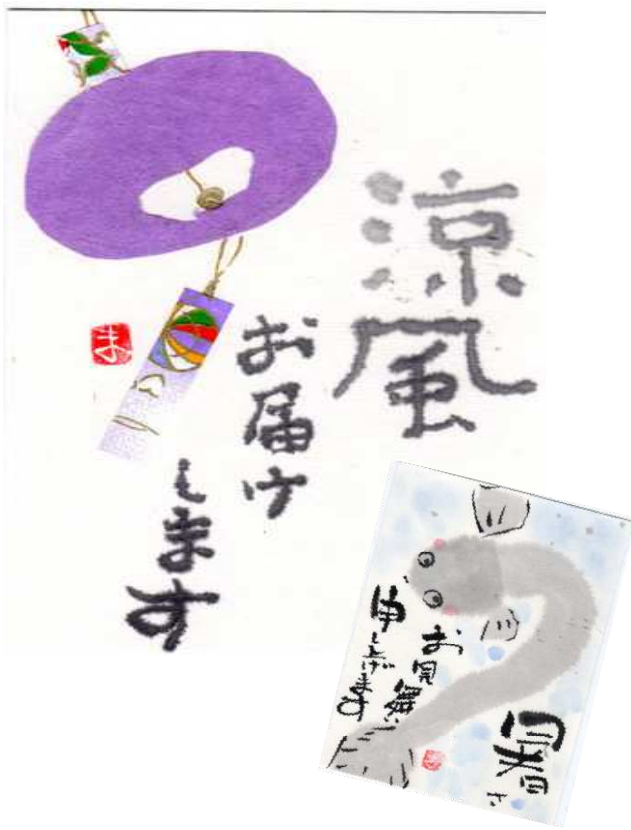 涼風
お届け
します
ま
暑さ
お見舞い
申し上げます